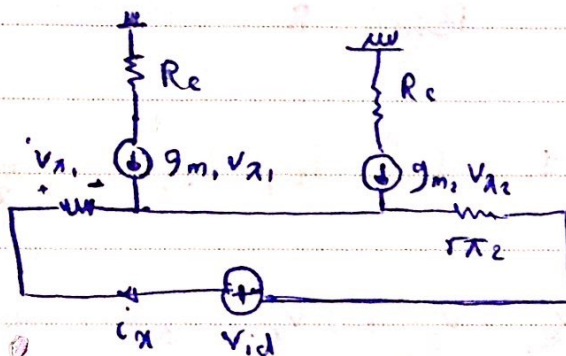 Rc Rc
+ Vπ₁ − gm₁ Vπ₁ gm₂ Vπ₂
rπ₂
ix + Vid